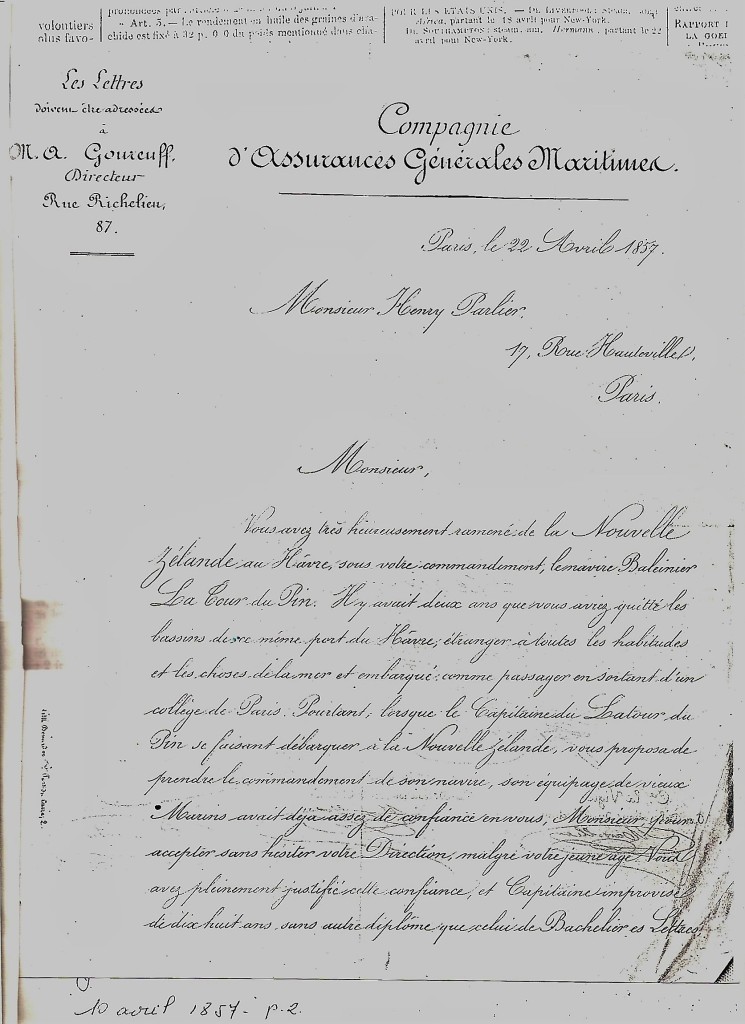 volontiers
plus favo-
« Art. 3. — Le rendement en huile des graines d'ara-
chide est fixé à 32 p. 0/0 du poids mentionné dans cha-
POUR LES ETATS UNIS. — De LIVERPOOL: steam. angl.
partant le 18 avril pour New-York.
De SOUTHAMPTON: steam. am. Hermann, partant le 22
avril pour New-York.
RAPPORT
LA GOEL
Les Lettres
doivent être adressées
à
M. A. Goureuff.
Directeur
Rue Richelieu,
87.
Compagnie
d'Assurances Générales Maritimes.
Paris, le 22 Avril 1857.
Monsieur Henry Parlier.
17, Rue Hauteville,
Paris.
Monsieur,
Vous avez très heureusement ramené de la Nouvelle
Zélande au Hâvre, sous votre commandement, le navire Baleinier
La Tour du Pin. Il y avait deux ans que vous aviez quitté les
bassins de ce même port du Hâvre; étranger à toutes les habitudes
et les choses de la mer et embarqué comme passager en sortant d'un
collège de Paris. Pourtant, lorsque le Capitaine du Latour du
Pin se faisant débarquer à la Nouvelle Zélande, vous proposa de
prendre le commandement de son navire, son équipage de vieux
Marins avait déjà assez de confiance en vous, Monsieur, pour
accepter sans hésiter votre Direction, malgré votre jeune âge. Vous
avez pleinement justifié cette confiance, et Capitaine improvisé
de dix huit ans, sans autre diplôme que celui de Bachelier es Lettres
10 avril 1857 - p. 2.